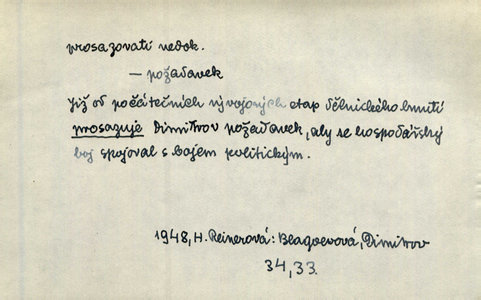 prosazovati nedok.
— požadavek
Již od počátečních vývojových etap dělnického hnutí
prosazuje Dimitrov požadavek, aby se hospodářský
boj spojoval s bojem politickým.
1948, H. Reinerová: Blagoevová, Dimitrov
34, 33.